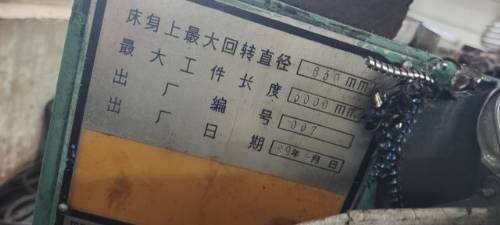 床身上最大回转直径 860mm
最大工件长度 3000mm
出厂编号 007
出厂日期 年 月 日